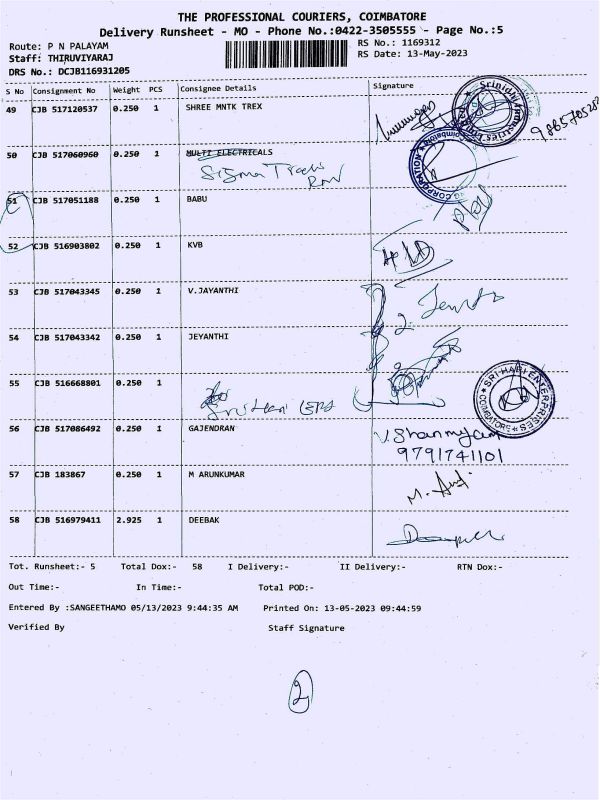 THE PROFESSIONAL COURIERS, COIMBATORE
Delivery Runsheet - MO - Phone No.:0422-3505555 - Page No.:5
Route: P N PALAYAM
RS No.: 1169312
Staff: THIRUVIYARAJ
RS Date: 13-May-2023
DRS No.: DCJB116931205
S No Consignment No Weight PCS Consignee Details Signature
49 CJB 517120537 0.250 1 SHREE MNTK TREX
50 CJB 517060960 0.250 1 MULTI ELECTRICALS
Sigma
51 CJB 517051188 0.250 1 BABU
52 CJB 516903802 0.250 1 KVB
53 CJB 517043345 0.250 1 V.JAYANTHI
54 CJB 517043342 0.250 1 JEYANTHI
55 CJB 516668801 0.250 1
SRI HARI ENTERPRISES
COIMBATORE
56 CJB 517086492 0.250 1 GAJENDRAN
V. Shanmugam
9791741101
57 CJB 183867 0.250 1 M ARUNKUMAR
58 CJB 516979411 2.925 1 DEEBAK
Tot. Runsheet:- 5 Total Dox:- 58 I Delivery:- II Delivery:- RTN Dox:-
Out Time:- In Time:- Total POD:-
Entered By :SANGEETHAMO 05/13/2023 9:44:35 AM Printed On: 13-05-2023 09:44:59
Verified By Staff Signature
2